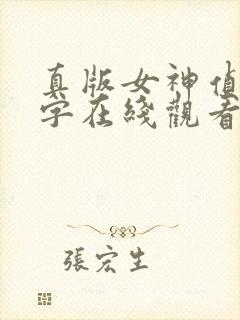 真版女神值
字在綫觀看
張宏生